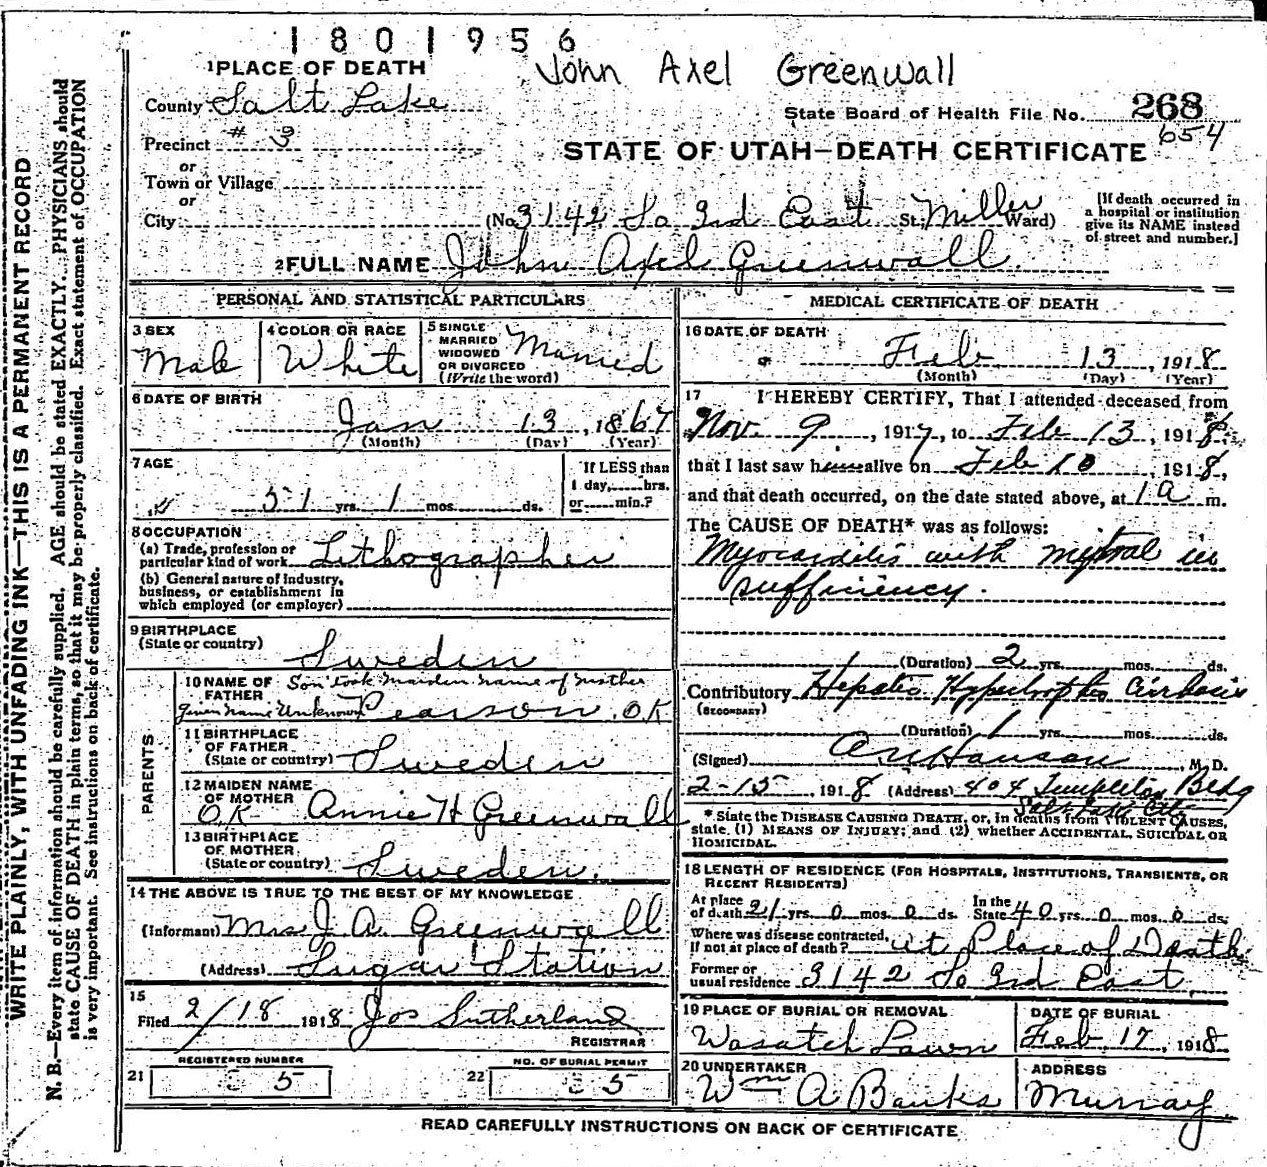 1801956
John Axel Greenwall
1 PLACE OF DEATH
County Salt Lake
State Board of Health File No. 268
654
Precinct # 3
STATE OF UTAH—DEATH CERTIFICATE
or
Town or Village
or
City (No. 3142 So 3rd East St; Miller Ward)
[If death occurred in a hospital or institution give its NAME instead of street and number.]
2 FULL NAME John Axel Greenwall
PERSONAL AND STATISTICAL PARTICULARS
3 SEX Male
4 COLOR OR RACE White
5 SINGLE MARRIED WIDOWED OR DIVORCED (Write the word) Married
6 DATE OF BIRTH
Jan 13, 1867
(Month) (Day) (Year)
7 AGE
51 yrs. 1 mos. ds.
If LESS than 1 day, hrs. or min.?
8 OCCUPATION
(a) Trade, profession or particular kind of work Lithographer
(b) General nature of Industry, business, or establishment in which employed (or employer)
9 BIRTHPLACE
(State or country) Sweden
PARENTS
10 NAME OF FATHER Son took maiden name of mother
Given name Unknown Pearson. O.K
11 BIRTHPLACE OF FATHER
(State or country) Sweden
12 MAIDEN NAME OF MOTHER
O.K Annie H Greenwall
13 BIRTHPLACE OF MOTHER
(State or country) Sweden.
14 THE ABOVE IS TRUE TO THE BEST OF MY KNOWLEDGE
(Informant) Mrs J. A. Greenwall
(Address) Sugar Station
15
Filed 2/18 1918 Jos Sutherland
REGISTRAR
REGISTERED NUMBER
21 5
NO. OF BURIAL PERMIT
22 5
MEDICAL CERTIFICATE OF DEATH
16 DATE OF DEATH
Feb 13, 1918
(Month) (Day) (Year)
17 I HEREBY CERTIFY, That I attended deceased from
Nov. 9, 1917, to Feb 13, 1918,
that I last saw h alive on Feb 10, 1918,
and that death occurred, on the date stated above, at 1 a m.
The CAUSE OF DEATH* was as follows:
Myocarditis with mitral in
sufficiency.
(Duration) 2 yrs. mos. ds.
Contributory Hepatic Hypertrophic Cirrhosis
(SECONDARY)
(Duration) 1 yrs. mos. ds.
(Signed) Hanson, M. D.
2-15, 1918 (Address) 404 Templeton Bldg
Salt Lake City
* State the DISEASE CAUSING DEATH, or, in deaths from VIOLENT CAUSES,
state (1) MEANS OF INJURY; and (2) whether ACCIDENTAL, SUICIDAL OR
HOMICIDAL.
18 LENGTH OF RESIDENCE (FOR HOSPITALS, INSTITUTIONS, TRANSIENTS, OR
RECENT RESIDENTS)
At place of death 21 yrs. 0 mos. 0 ds. In the State 40 yrs. 0 mos. 0 ds.
Where was disease contracted, If not at place of death? at Place of Death
Former or usual residence 3142 So 3rd East
19 PLACE OF BURIAL OR REMOVAL
Wasatch Lawn
DATE OF BURIAL
Feb. 17, 1918
20 UNDERTAKER
Wm A Banks
ADDRESS
Murray
READ CAREFULLY INSTRUCTIONS ON BACK OF CERTIFICATE
WRITE PLAINLY, WITH UNFADING INK—THIS IS A PERMANENT RECORD
N. B.—Every item of information should be carefully supplied. AGE should be stated EXACTLY. PHYSICIANS should
state CAUSE OF DEATH in plain terms, so that it may be properly classified. Exact statement of OCCUPATION
is very important. See instructions on back of certificate.